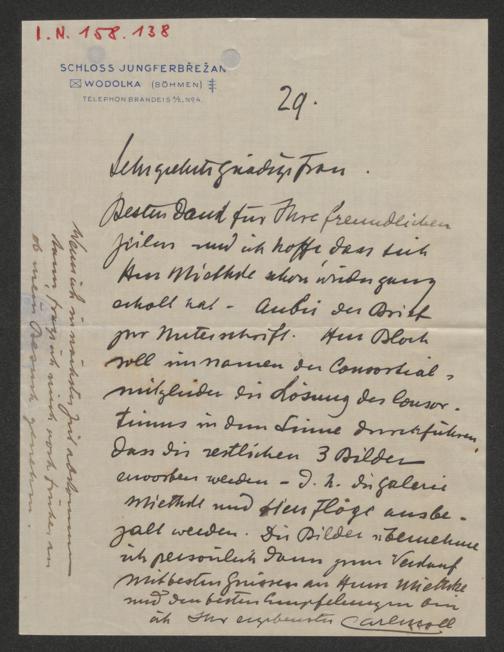 I.N. 158.138
SCHLOSS JUNGFERBŘEŽAN
WODOLKA (BÖHMEN)
TELEPHON BRANDEIS a/E. No 4.
29.
Sehr geehrte gnädige Frau.
Besten Dank für Ihre freundlichen
Zeilen und ich hoffe dass sich
Herr Miethke schon wieder ganz
erholt hat - Anbei der Brief
zur Unterschrift. Herr Bloch
soll im namen der Consortial-
mitglieder die Lösung des Consor-
tiums in dem Sinne durchführen,
dass die restlichen 3 Bilder
erworben werden - d. h. die galerie
Miethke und Herr Flöge ausbe-
zalt werden. Die Bilder übernehme
ich persönlich dann zum Verkauf
Mit besten Grüssen an Herrn Miethke
und den besten Empfelungen bin
ich Ihr ergebenster Carl Moll
Wenn ich in nächster Zeit
dann frage ich mich noch früher an
ob mein Besuch genehm.